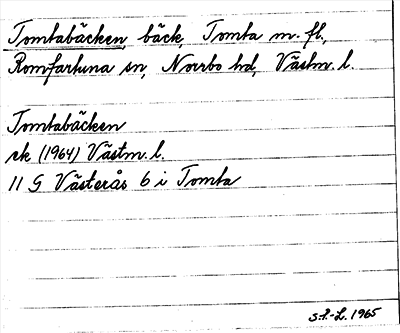 Tomtabäcken, bäck, Tomta m. fl.,
Romfartuna sn, Norrbo hd, Västm. l.
Tomtabäcken
ek (1964) Västm. l.
11 G Västerås 6 i Tomta
1965